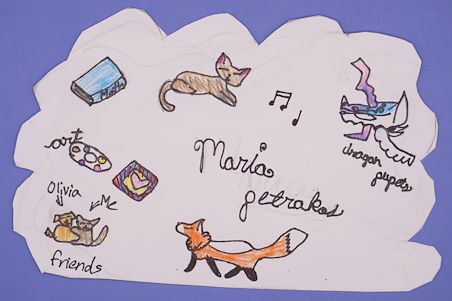 Math
art
Maria
dragon
pupets
Olivia
Me
getrakos
friends